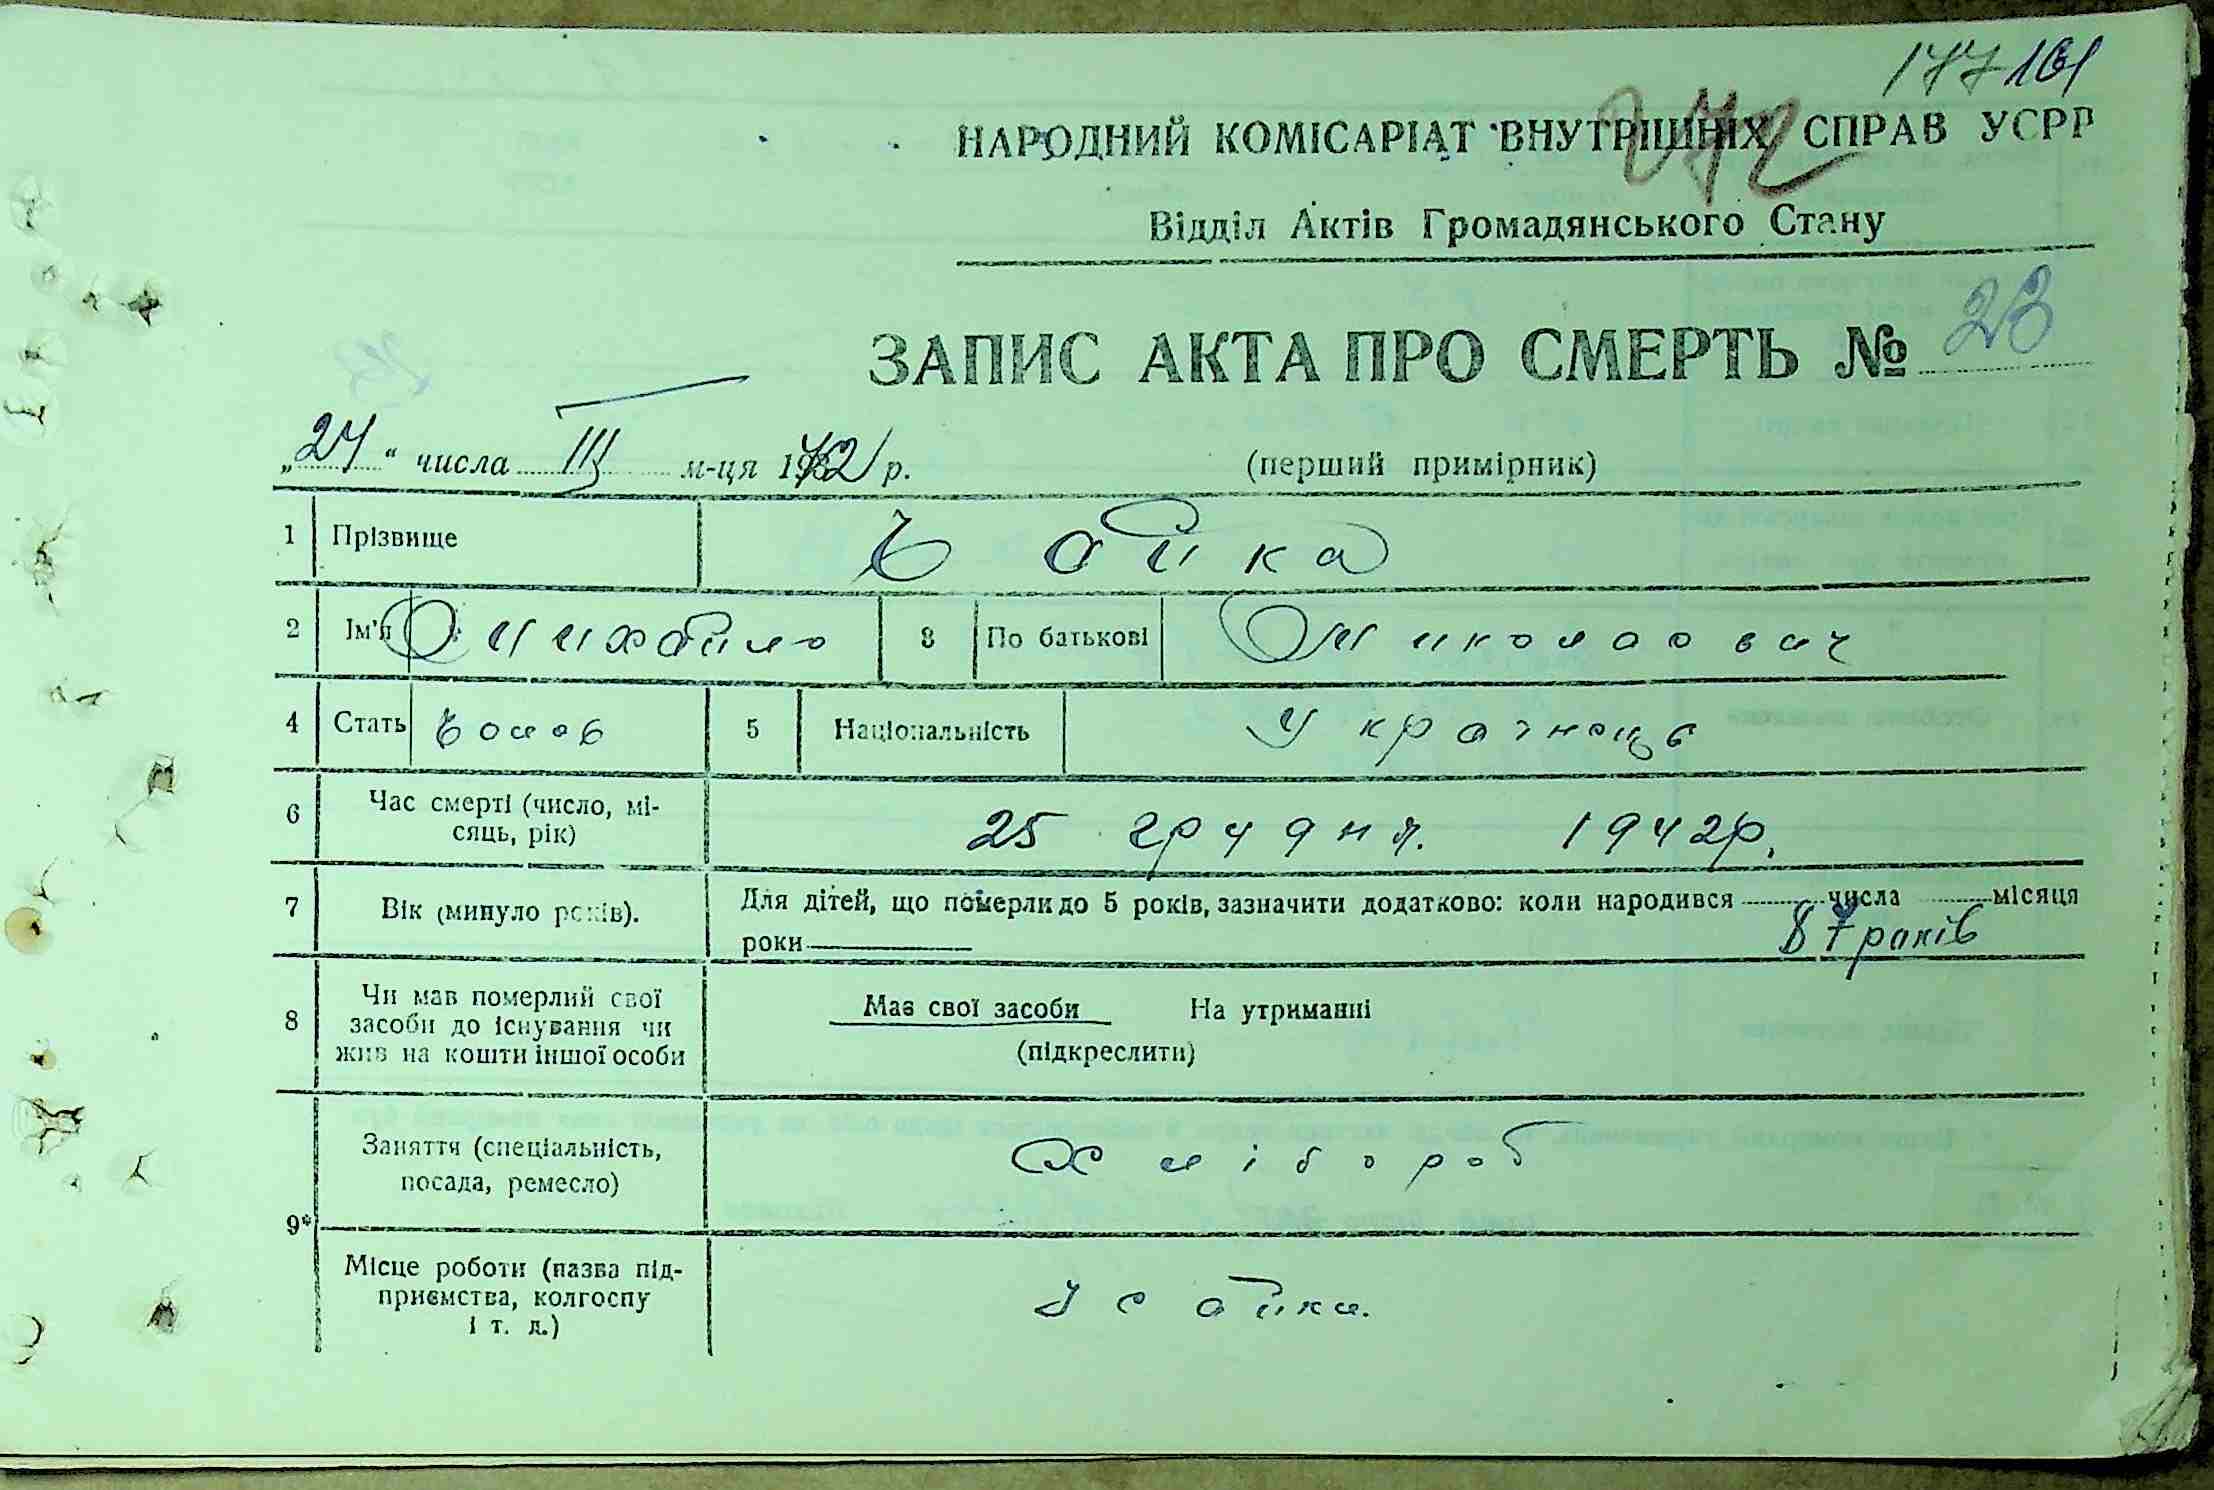 177 161
272
НАРОДНИЙ КОМІСАРІАТ ВНУТРІШНІХ СПРАВ УСРР
Відділ Актів Громадянського Стану
ЗАПИС АКТА ПРО СМЕРТЬ № 28
„24“ числа III м-ця 1942 р. (перший примірник)
1 Прізвище Чайка
2 Ім'я Михайло 3 По батькові Миколаович
4 Стать чолов 5 Національність Українець
6 Час смерті (число, мі-
сяць, рік) 25 грудня. 1942р.
7 Вік (минуло років). Для дітей, що померли до 5 років, зазначити додатково: коли народився числа місяця
роки 87 років
8 Чи мав померлий свої
засоби до існування чи
жив на кошти іншої особи
Маз свої засоби На утриманні
(підкреслити)
9* Заняття (спеціальність,
посада, ремесло) Хлібороб
Місце роботи (назва під-
приємства, колгоспу
і т. д.)